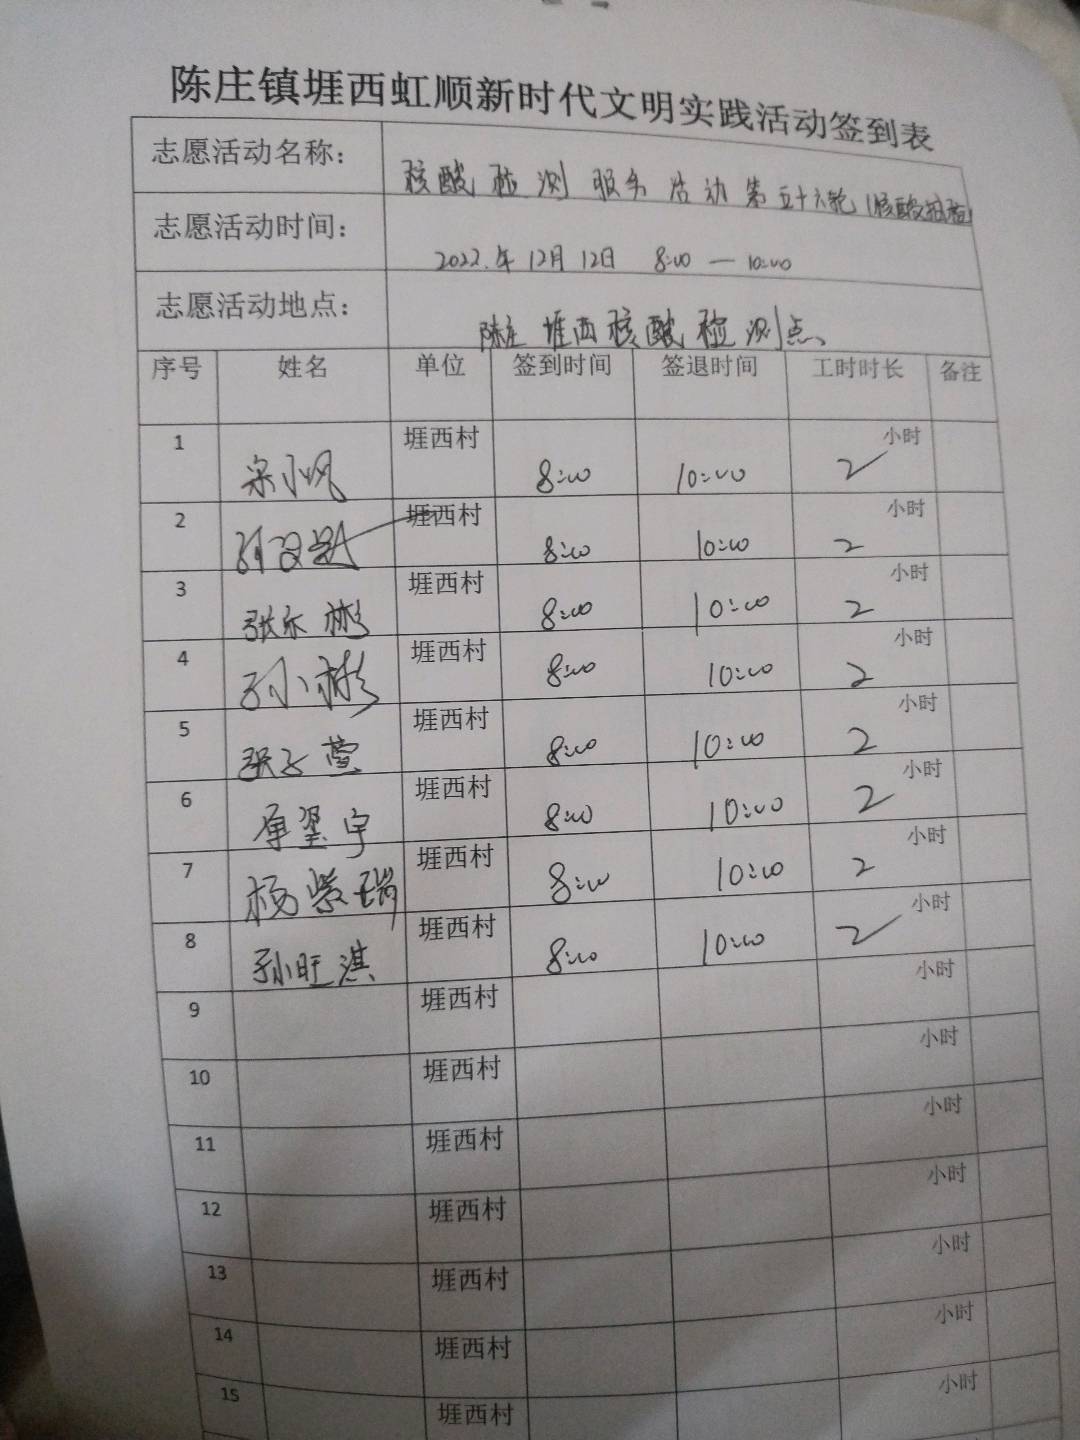 陈庄镇堐西虹顺新时代文明实践活动签到表
志愿活动名称： 核酸检测服务活动第五十六轮（核酸
志愿活动时间： 2022.年12月12日 8:00 — 10:00
志愿活动地点： 陈庄堐西核酸检测点、
序号 姓名 单位 签到时间 签退时间 工时时长 备注
1 宋小帆 堐西村 8:00 10:00 2 小时
2 堐西村 8:00 10:00 2 小时
3 张东彬 堐西村 8:00 10:00 2 小时
4 孙小彬 堐西村 8:00 10:00 2 小时
5 张子萱 堐西村 8:00 10:00 2 小时
6 宇 堐西村 8:00 10:00 2 小时
7 杨紫瑞 堐西村 8:00 10:00 2 小时
8 孙旺淇 堐西村 8:00 10:00 2 小时
9 堐西村 小时
10 堐西村 小时
11 堐西村 小时
12 堐西村 小时
13 堐西村 小时
14 堐西村 小时
15 堐西村 小时